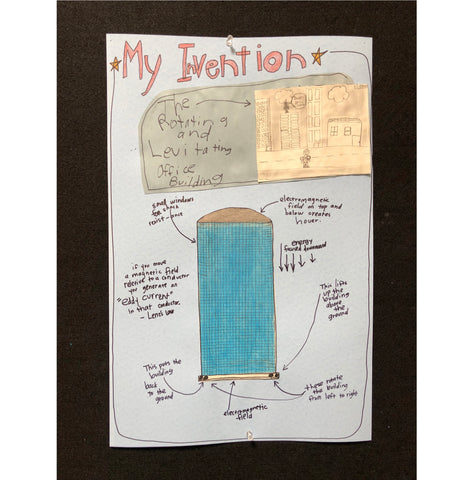 My Invention
The
Rotating
and
Levitating
Office
Building
small windows
for shock
resist-ance
electromagnetic
field on top and
below creates
hover.
energy
forced downward
if you move
a magnetic field
relative to a conductor
you generate an
"eddy current"
in that conductor.
- Lenz's law
This lifts
up the
building
above
the
ground
This puts the
building
back
to the
ground
electromagnetic
field
these rotate
the building
from left to right